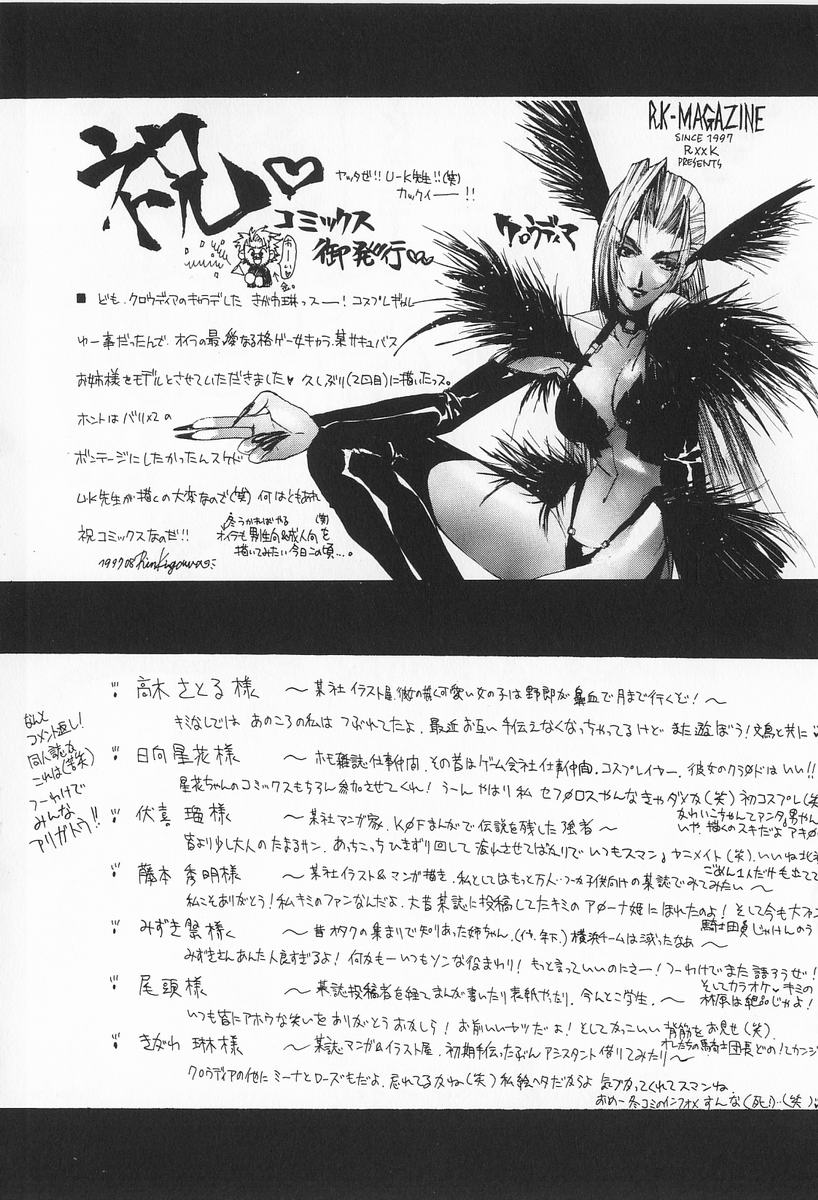 R.K-MAGAZINE
SINCE 1997
RxxK
PRESENTS
祝♡
ヤッタゼ!! U-K先生!!(笑)
カックイー――!!
コミックス
御発行♡
クロウディア
■ ども、クロウディアのキャラデした きがわ琳っスー――! コスプレギャル
ゆー事だったんで、オイラの最愛なる格ゲー女キャラ、某サキュバス
お姉様をモデルとさせていただきました♥ 久しぶり(2回目)に描いたっス。
ホントはバリバリの
ボンテージにしたかったんスケド
U-K先生が描くの大変なので(笑) 何はともあれ
祝コミックスなのだ!!
冬うかればやる (笑)
オイラも男性向&成人向を
描いてみたい今日この頃…。
1997.08
なんと
コメント返し!
同人誌な
これは(苦笑)
つーわけで
みんな
アリガトウ!!
高木 さとる 様 〜某社 イラスト屋、彼女の描く可愛い女の子は野郎が鼻血で月まで行くぞ!〜
キミなしでは あのころの私は つぶれてたよ、最近お互い手伝えなくなっちゃってるけど また遊ぼう! 文鳥と共に
日向 星花 様 〜ホモ雑誌仕事仲間、その昔はゲーム会社仕事仲間、コスプレイヤー、彼女のクラ○ドは いい!!
星花ちゃんのコミックスもちろん参加させてくれ! うーん やはり私 セフ○ロスやんなきゃダメカ(笑) 初コスプレ(笑
かわいこちゃんてアンタ。男やん
いや、描くのスキだよ。アキ○
伏喜 瑠 様 〜某社マンガ家、K○Fまんがで伝説を残した強者〜
皆より少し大人の たよるサン、あっちこっちひきずり回して 疲れさせてばかりで いつもスマン。ヤニメイト(笑)、いいね北
藤本 秀明 様 〜某社イラスト&マンガ描き、私としてはもっと万人…つーか子供向けの某誌でみてみたい〜
ごめん1人だけも立てて
私こそありがとう! 私キミのファンなんだよ、大昔某誌に投稿してたキミのア○ーナ姫にほれたのよ! そして今も大ファン
みずき 蟹 様く 〜昔オタクの集まりで知りあった姉ちゃん、(イヤ、年下、) 横浜チームは滅ったなぁ〜
騎士団員じゃけんのう
みずきさんあんた人良すぎるよ! 何かもーいつもソンな役まわり! もっと言っていいのにさー! つーわけでまた語ろうぜ!
そしてカラオケ♥ キミの
林原は絶品じゃよ!
尾頭 様 〜某誌投稿者を経てまんが書いたり表紙やったり、今んとこ学生、〜
いつも皆にアホウな笑いを ありがとうおかしら! お前いいヤツだよ! そしてかっこいい背筋をお見せ(笑)
オレたちの騎士団長どの! てカンジ
きがわ 琳 様 〜某誌マンガ&イラスト屋、初期手伝ったぶん アシスタント借りてみたり〜
クロウディアの他にミーナとローズもだよ、忘れてるかね(笑) 私絵ヘタだからよ 気づかってくれてスマンね。
おめー冬コミのインフォメすんな(死)…(笑)